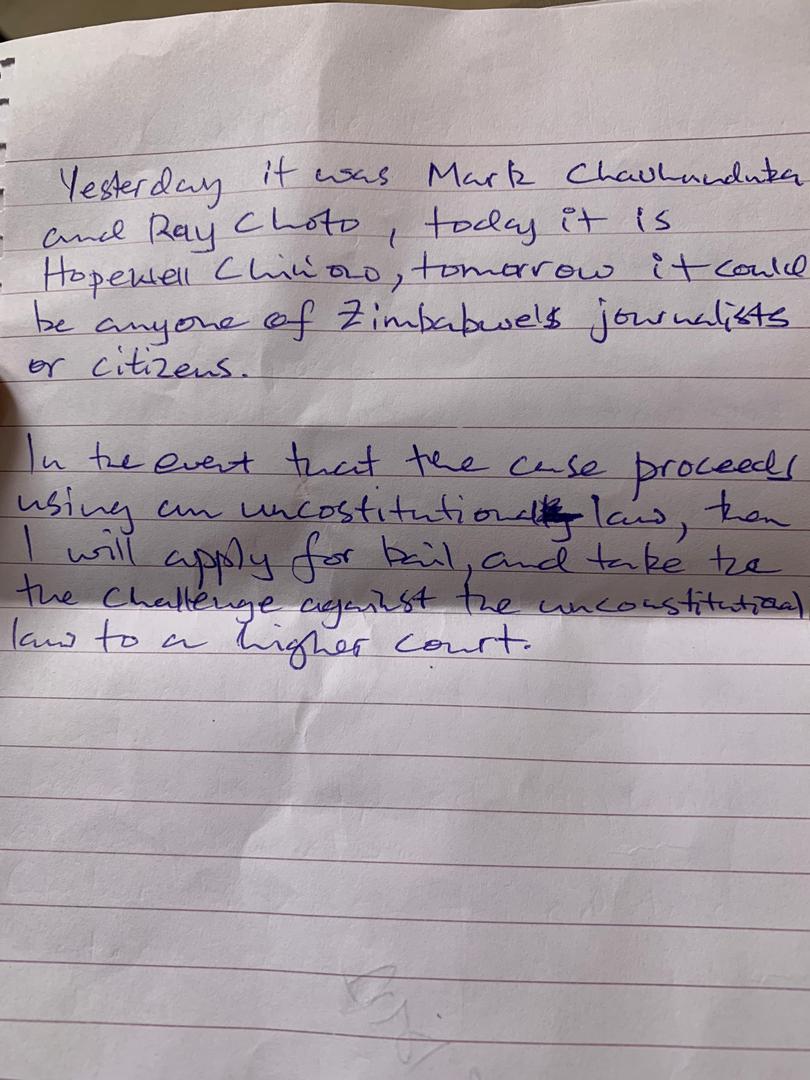 Yesterday it was Mark Chavhunduka
and Ray Choto, today it is
Hopewell Chin'ono, tomorrow it could
be anyone of Zimbabwe's journalists
or citizens.
In the event that the case proceeds
using an uncostitutional law, then
I will apply for bail, and take the
the challenge against the unconstitutional
law to a higher court.